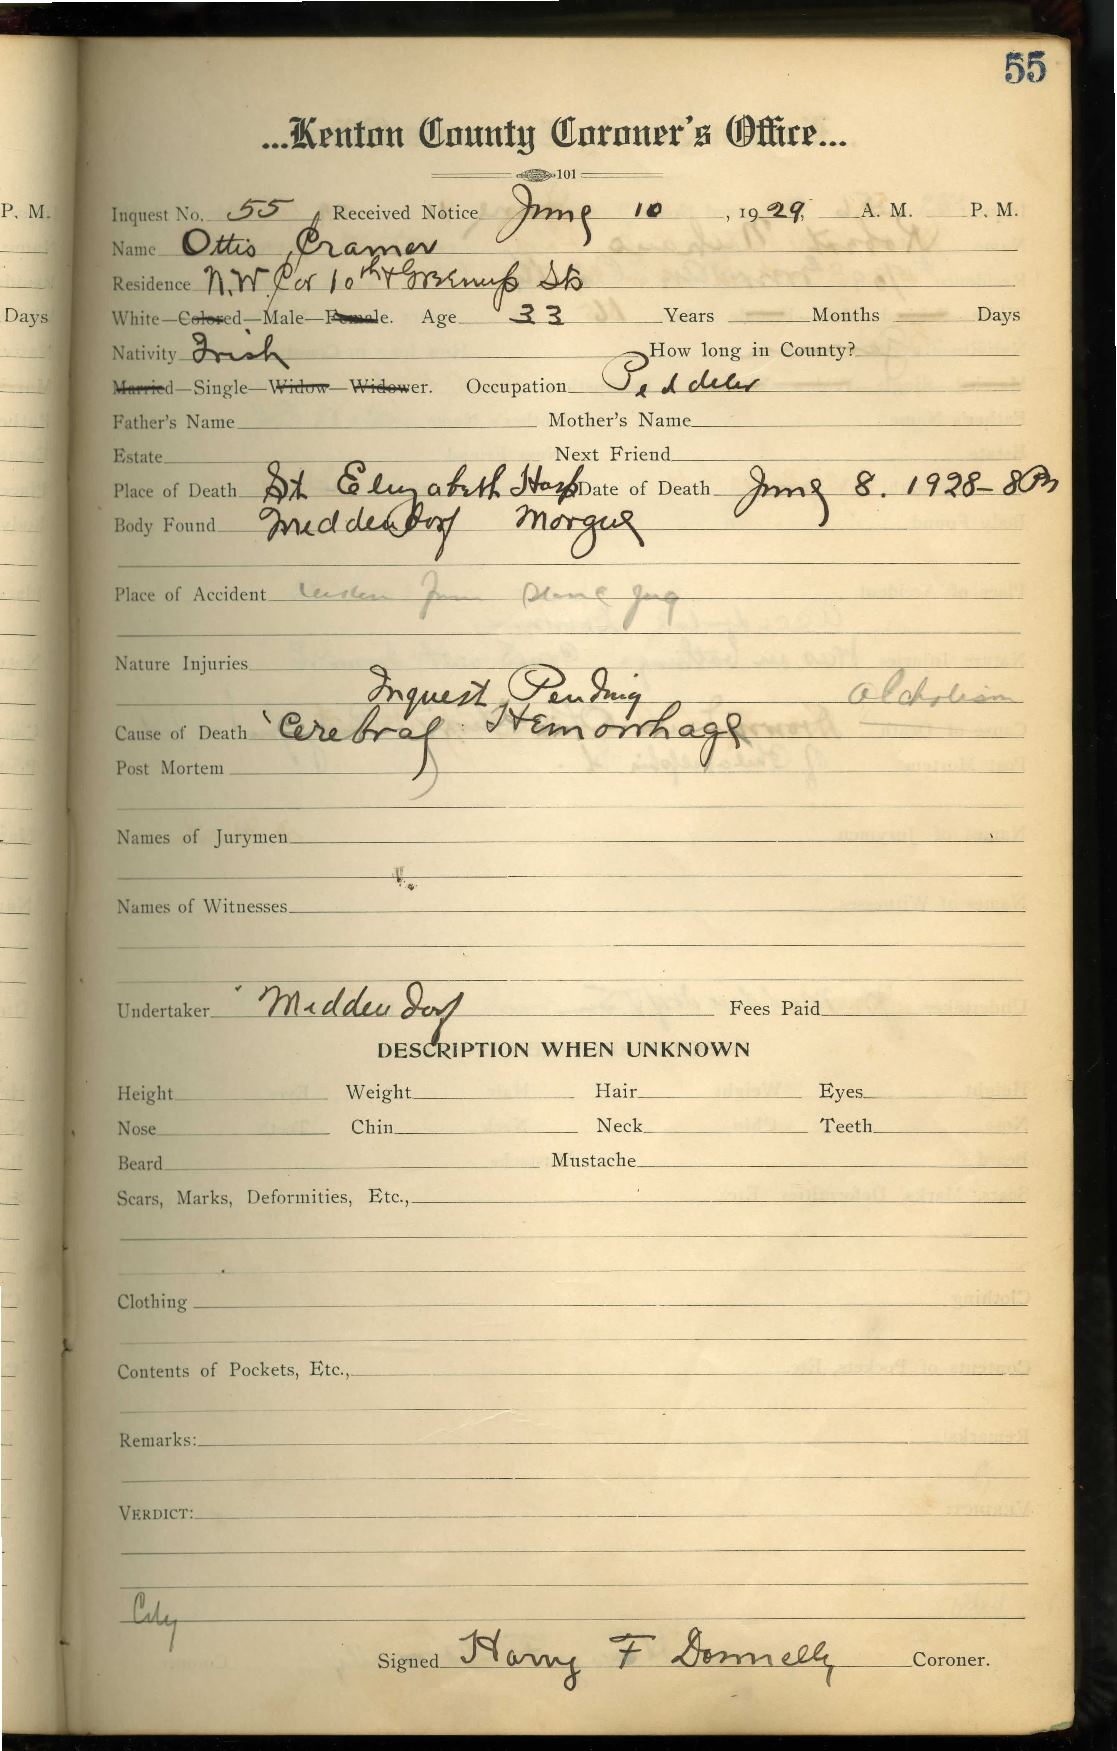 55
...Kenton County Coroner's Office...
101
P. M.
Inquest No. 55 Received Notice June 10, 1929, A. M. P. M.
Name Ottis Cramer
Residence N.W. Cor 10th & Greenup Sts
Days
White—Colored—Male—Female. Age 33 Years Months Days
Nativity Irish How long in County?
Married—Single—Widow—Widower. Occupation Peddler
Father's Name Mother's Name
Estate Next Friend
Place of Death St Elizabeth Hosp Date of Death June 8. 1928 - 8 PM
Body Found Middendorf Morgue
Place of Accident
Nature Injuries
Inquest Pending Alcholism
Cause of Death Cerebral Hemorrhage
Post Mortem
Names of Jurymen
Names of Witnesses
Undertaker Middendorf Fees Paid
DESCRIPTION WHEN UNKNOWN
Height Weight Hair Eyes
Nose Chin Neck Teeth
Beard Mustache
Scars, Marks, Deformities, Etc.,
Clothing
Contents of Pockets, Etc.,
Remarks:
VERDICT:
City
Signed Harry F Donnelly Coroner.